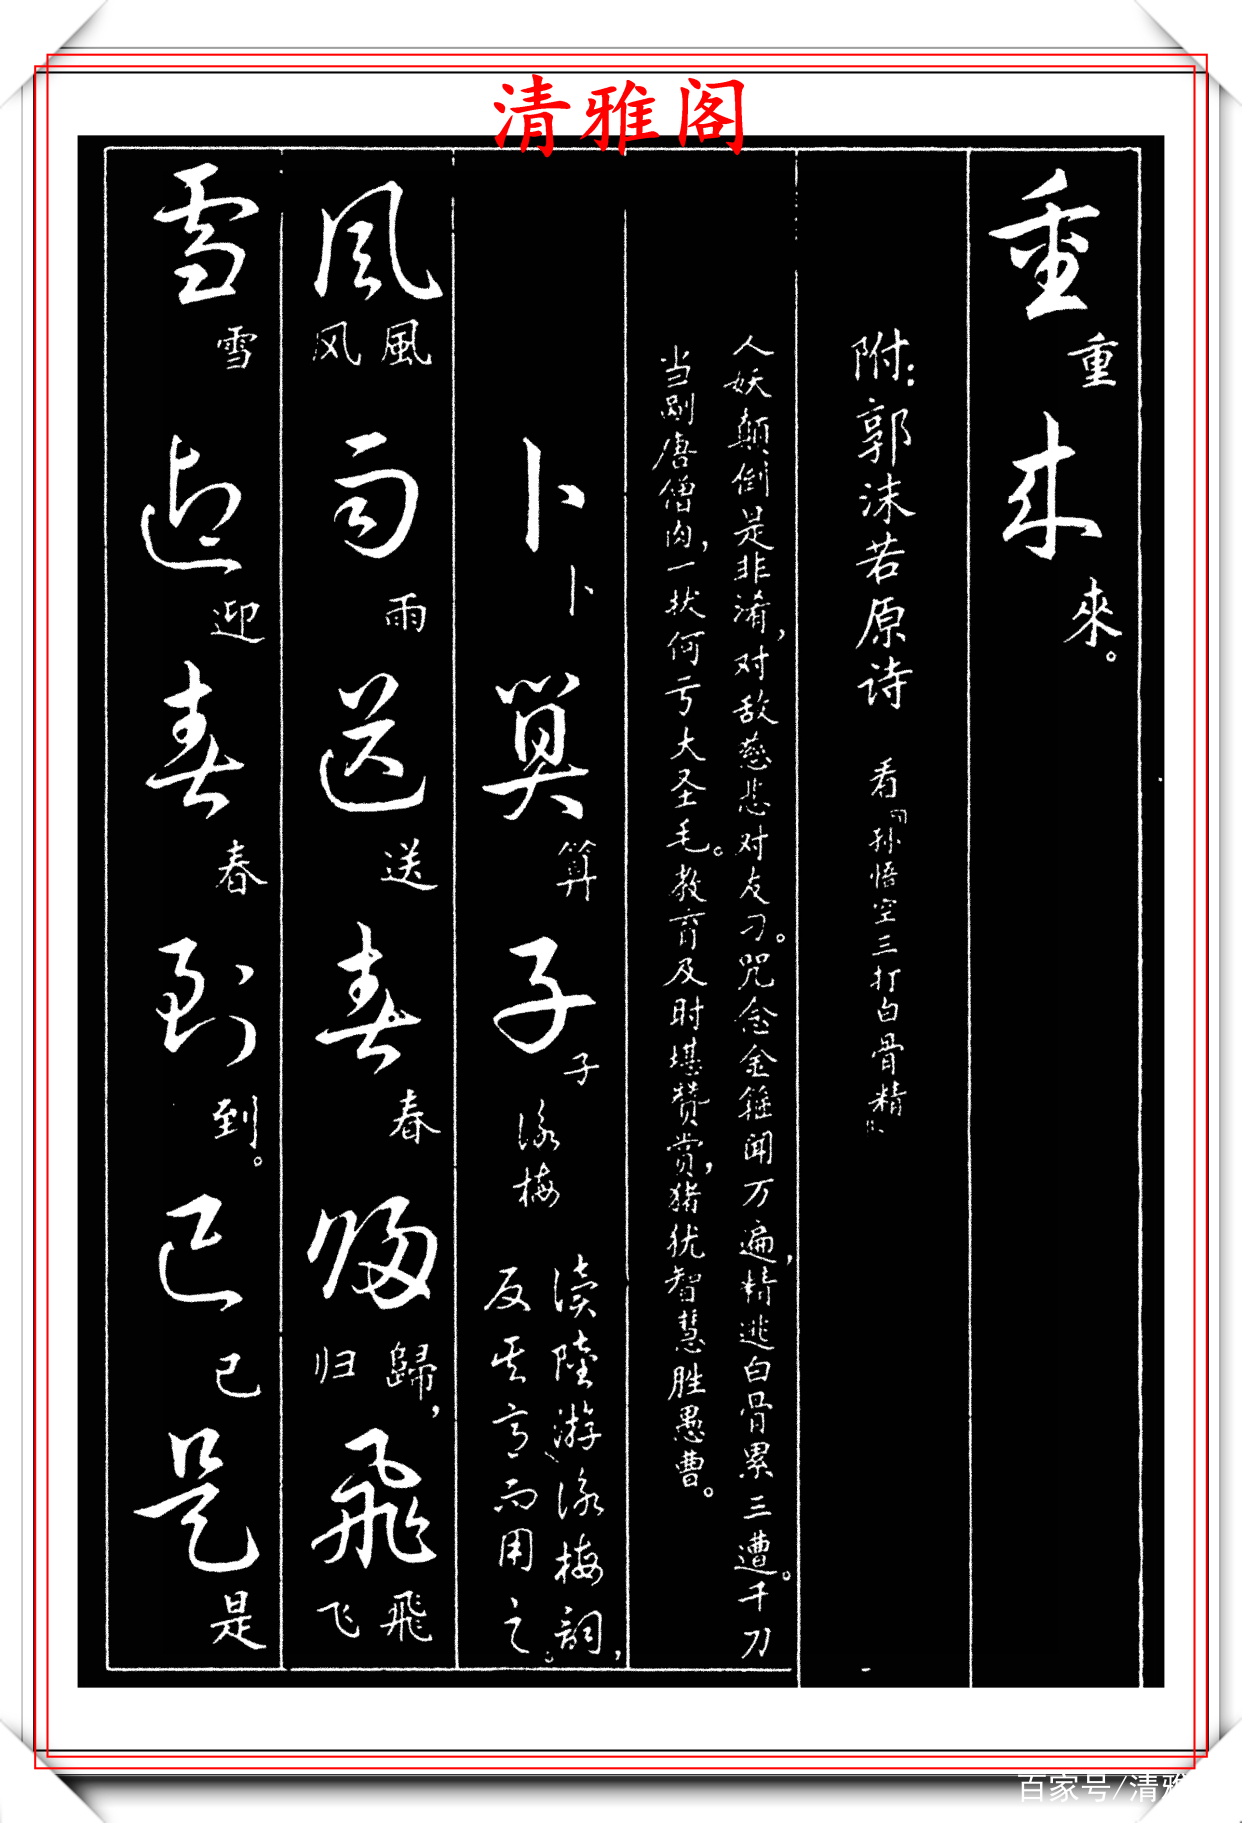 清雅阁
重重来來。
附：郭沫若原诗 看《孙悟空三打白骨精》
人妖颠倒是非淆，对敌慈悲对友刁。咒念金箍闻万遍，精逃白骨累三遭。千刀
当剐唐僧肉，一拔何亏大圣毛。教育及时堪赞赏，猪犹智慧胜愚曹。
卜卜算算子子 咏梅
读陸游咏梅詞，
反其意而用之。
風風风雨雨送送春春歸歸归，飛飛飞
雪雪迎迎春春到到。已已是是
百家号/清雅